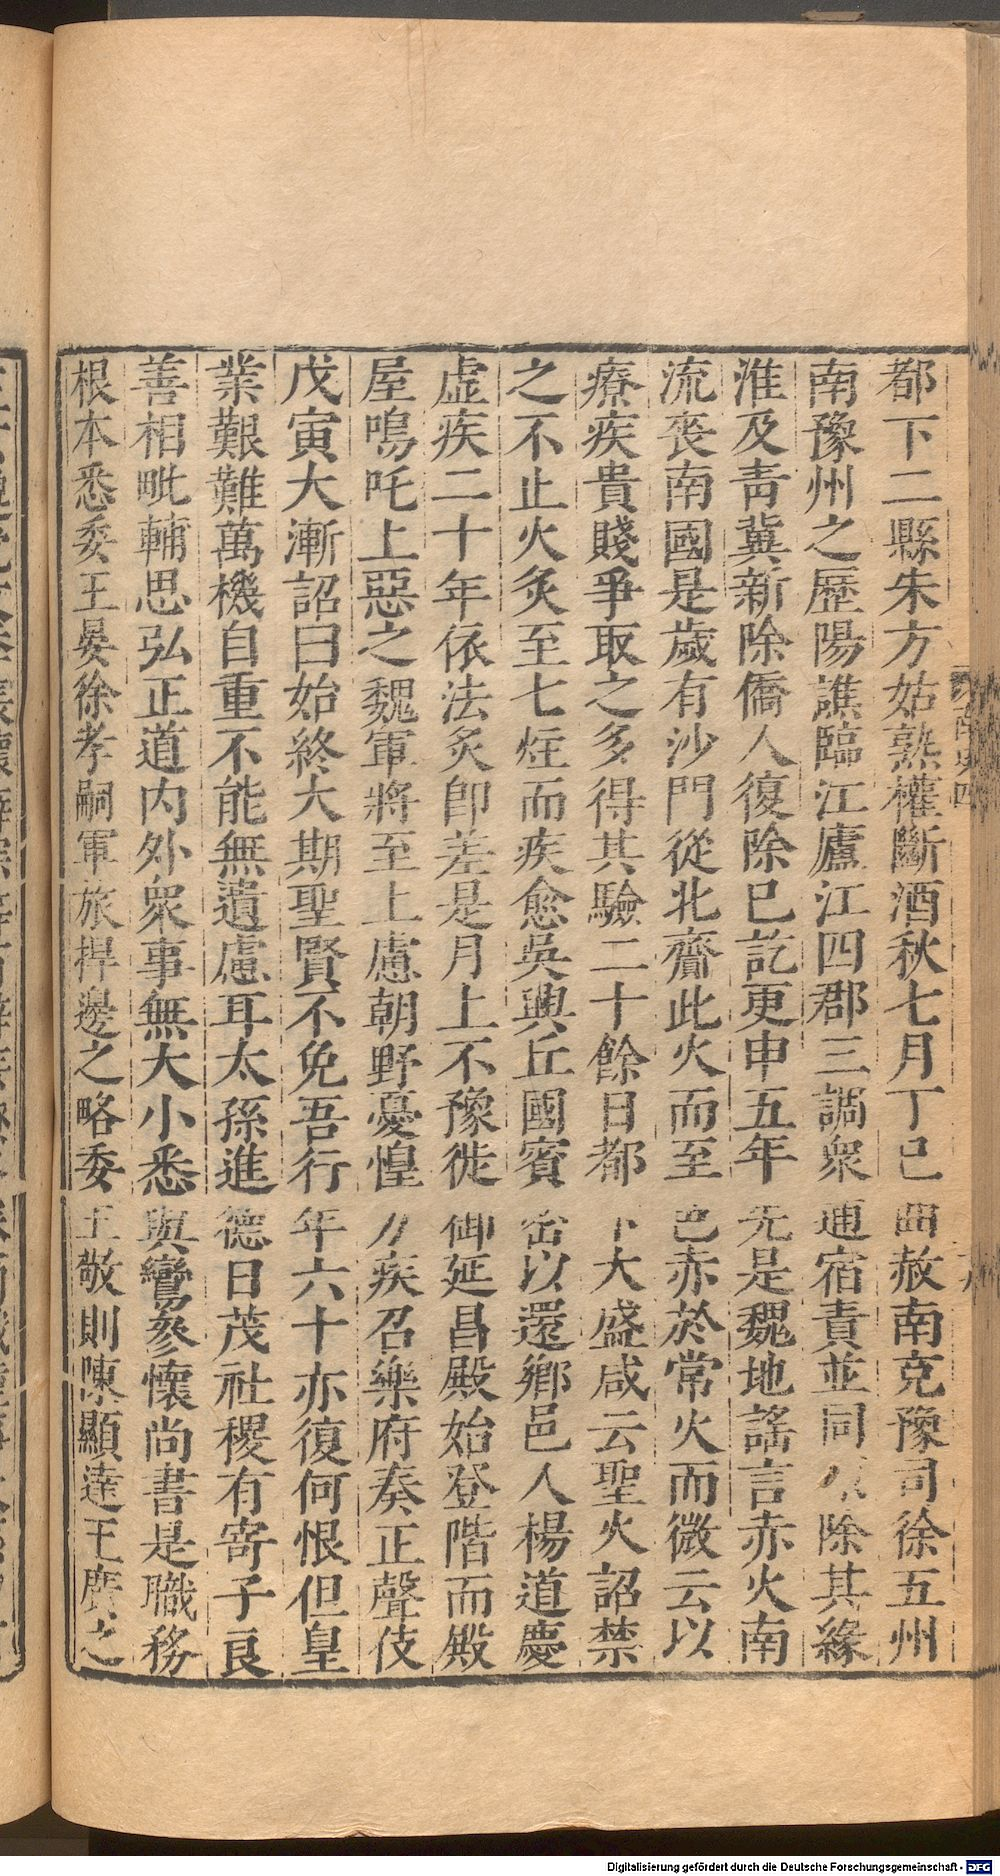 都下二縣朱方姑熟權斷酒秋七月丁巳曲赦南兖豫司徐五州
南豫州之歷陽譙臨江廬江四郡三調衆逋宿責並同除其緣
淮及靑冀新除僑人復除已訖更申五年先是魏地謠言赤火南
流喪南國是歲有沙門從北齎此火而至色赤於常火而微云以
療疾貴賤爭取之多得其驗二十餘日都下大盛咸云聖火詔禁
之不止火炙至七炷而疾愈吳興丘國賓密以還鄉邑人楊道慶
虛疾二十年依法炙卽差是月上不豫徙御延昌殿始登階而殿
屋鳴吒上惡之魏軍將至上慮朝野憂惶力疾召樂府奏正聲伎
戊寅大漸詔曰始終大期聖賢不免吾行年六十亦復何恨但皇
業艱難萬機自重不能無遺慮耳太孫進德日茂社稷有寄子良
善相毗輔思弘正道内外衆事無大小悉與鸞參懷尚書是職務
根本悉委王晏徐孝嗣軍旅捍邊之略委王敬則陳顯達王廣之
南史四
Digitalisierung gefördert durch die Deutsche Forschungsgemeinschaft - DFG